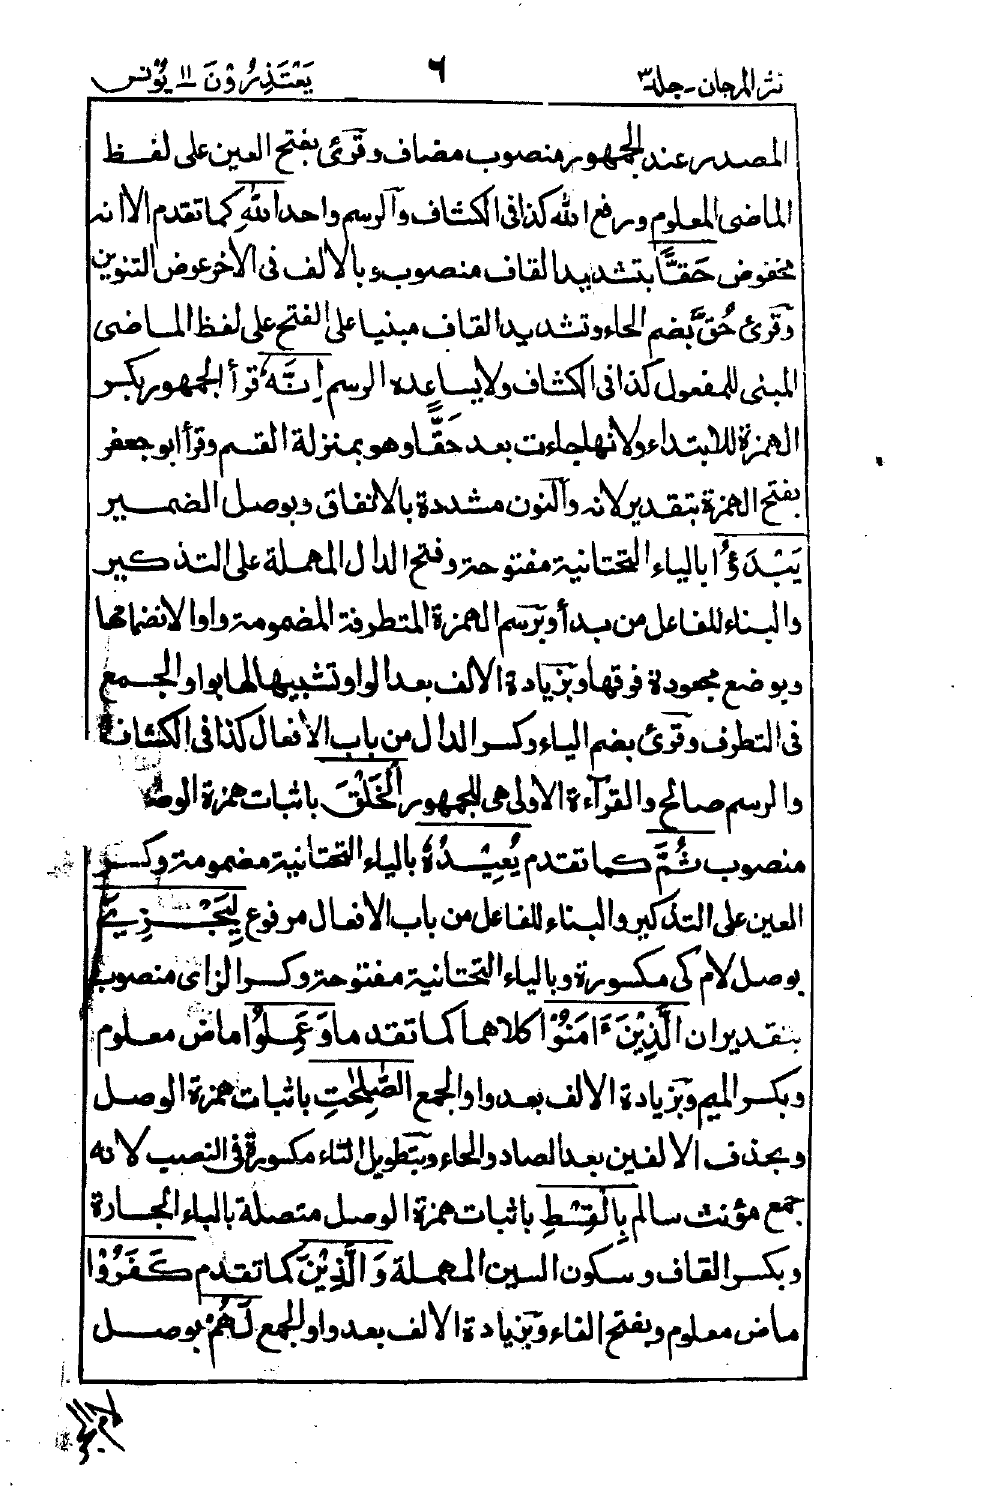 نثر المرجان - جلد ٣ ٦ يَعْتَذِرُوْنَ ۱۱ يُوْنس
المصدر عند الجمهور منصوب مضاف وقرئ بفتح العين على لفظ
الماضى المعلوم ورفع الله كذا فى الكشاف والرسم واحد اللهِ كما تقدم الا انه
مخفوض حَقًّا بتشديد القاف منصوب وبالالف فى الآخر عوض التنوين
وقرئ حُقَّ بضم الحاء وتشديد القاف مبنيا على الفتح على لفظ الماضى
المبنى للمفعول كذا فى الكشاف ولا يساعده الرسم اِنَّهٗ قرأ الجمهور بكسر
الهمزة للابتداء ولانها جاءت بعد حَقًّا وهو بمنزلة القسم وقرأ ابو جعفر
بفتح الهمزة بتقدير لانه والنون مشددة بالاتفاق وبوصل الضمير
يَبْدَؤُا بالياء التحتانية مفتوحة وفتح الدال المهملة على التذكير
والبناء للفاعل من بدأ وبرسم الهمزة المتطرفة المضمومة واوا لانضمامها
وبوضع مجعودة فوقها وبزيادة الالف بعد الواو تشبيها لها بواو الجمع
فى التطرف وقرئ بضم الياء وكسر الدال من باب الافعال كذا فى الكشاف
والرسم صالح والقرآءة الاولى هى للجمهور الْخَلْقَ باثبات همزة الوصل
منصوب ثُمَّ كما تقدم يُعِيْدُهٗ بالياء التحتانية مضمومة وكسر
العين على التذكير والبناء للفاعل من باب الافعال مرفوع لِيَجْزِىَ
بوصل لام كى مكسورة وبالياء التحتانية مفتوحة وكسر الزاى منصوب
بتقدير ان الَّذِيْنَ ءَامَنُوْا كلاهما كما تقدما وَعَمِلُوا ماض معلوم
وبكسر الميم وبزيادة الالف بعد واو الجمع الصّٰلِحٰتِ باثبات همزة الوصل
وبحذف الالفين بعد الصاد والحاء وبتطويل التاء مكسورة فى النصب لانه
جمع مؤنث سالم بِالْقِسْطِ باثبات همزة الوصل متصلة بالباء الجارة
وبكسر القاف وسكون السين المهملة وَالَّذِيْنَ كما تقدم كَفَرُوْا
ماض معلوم وبفتح الفاء وبزيادة الالف بعد واو الجمع لَهُمْ بوصل